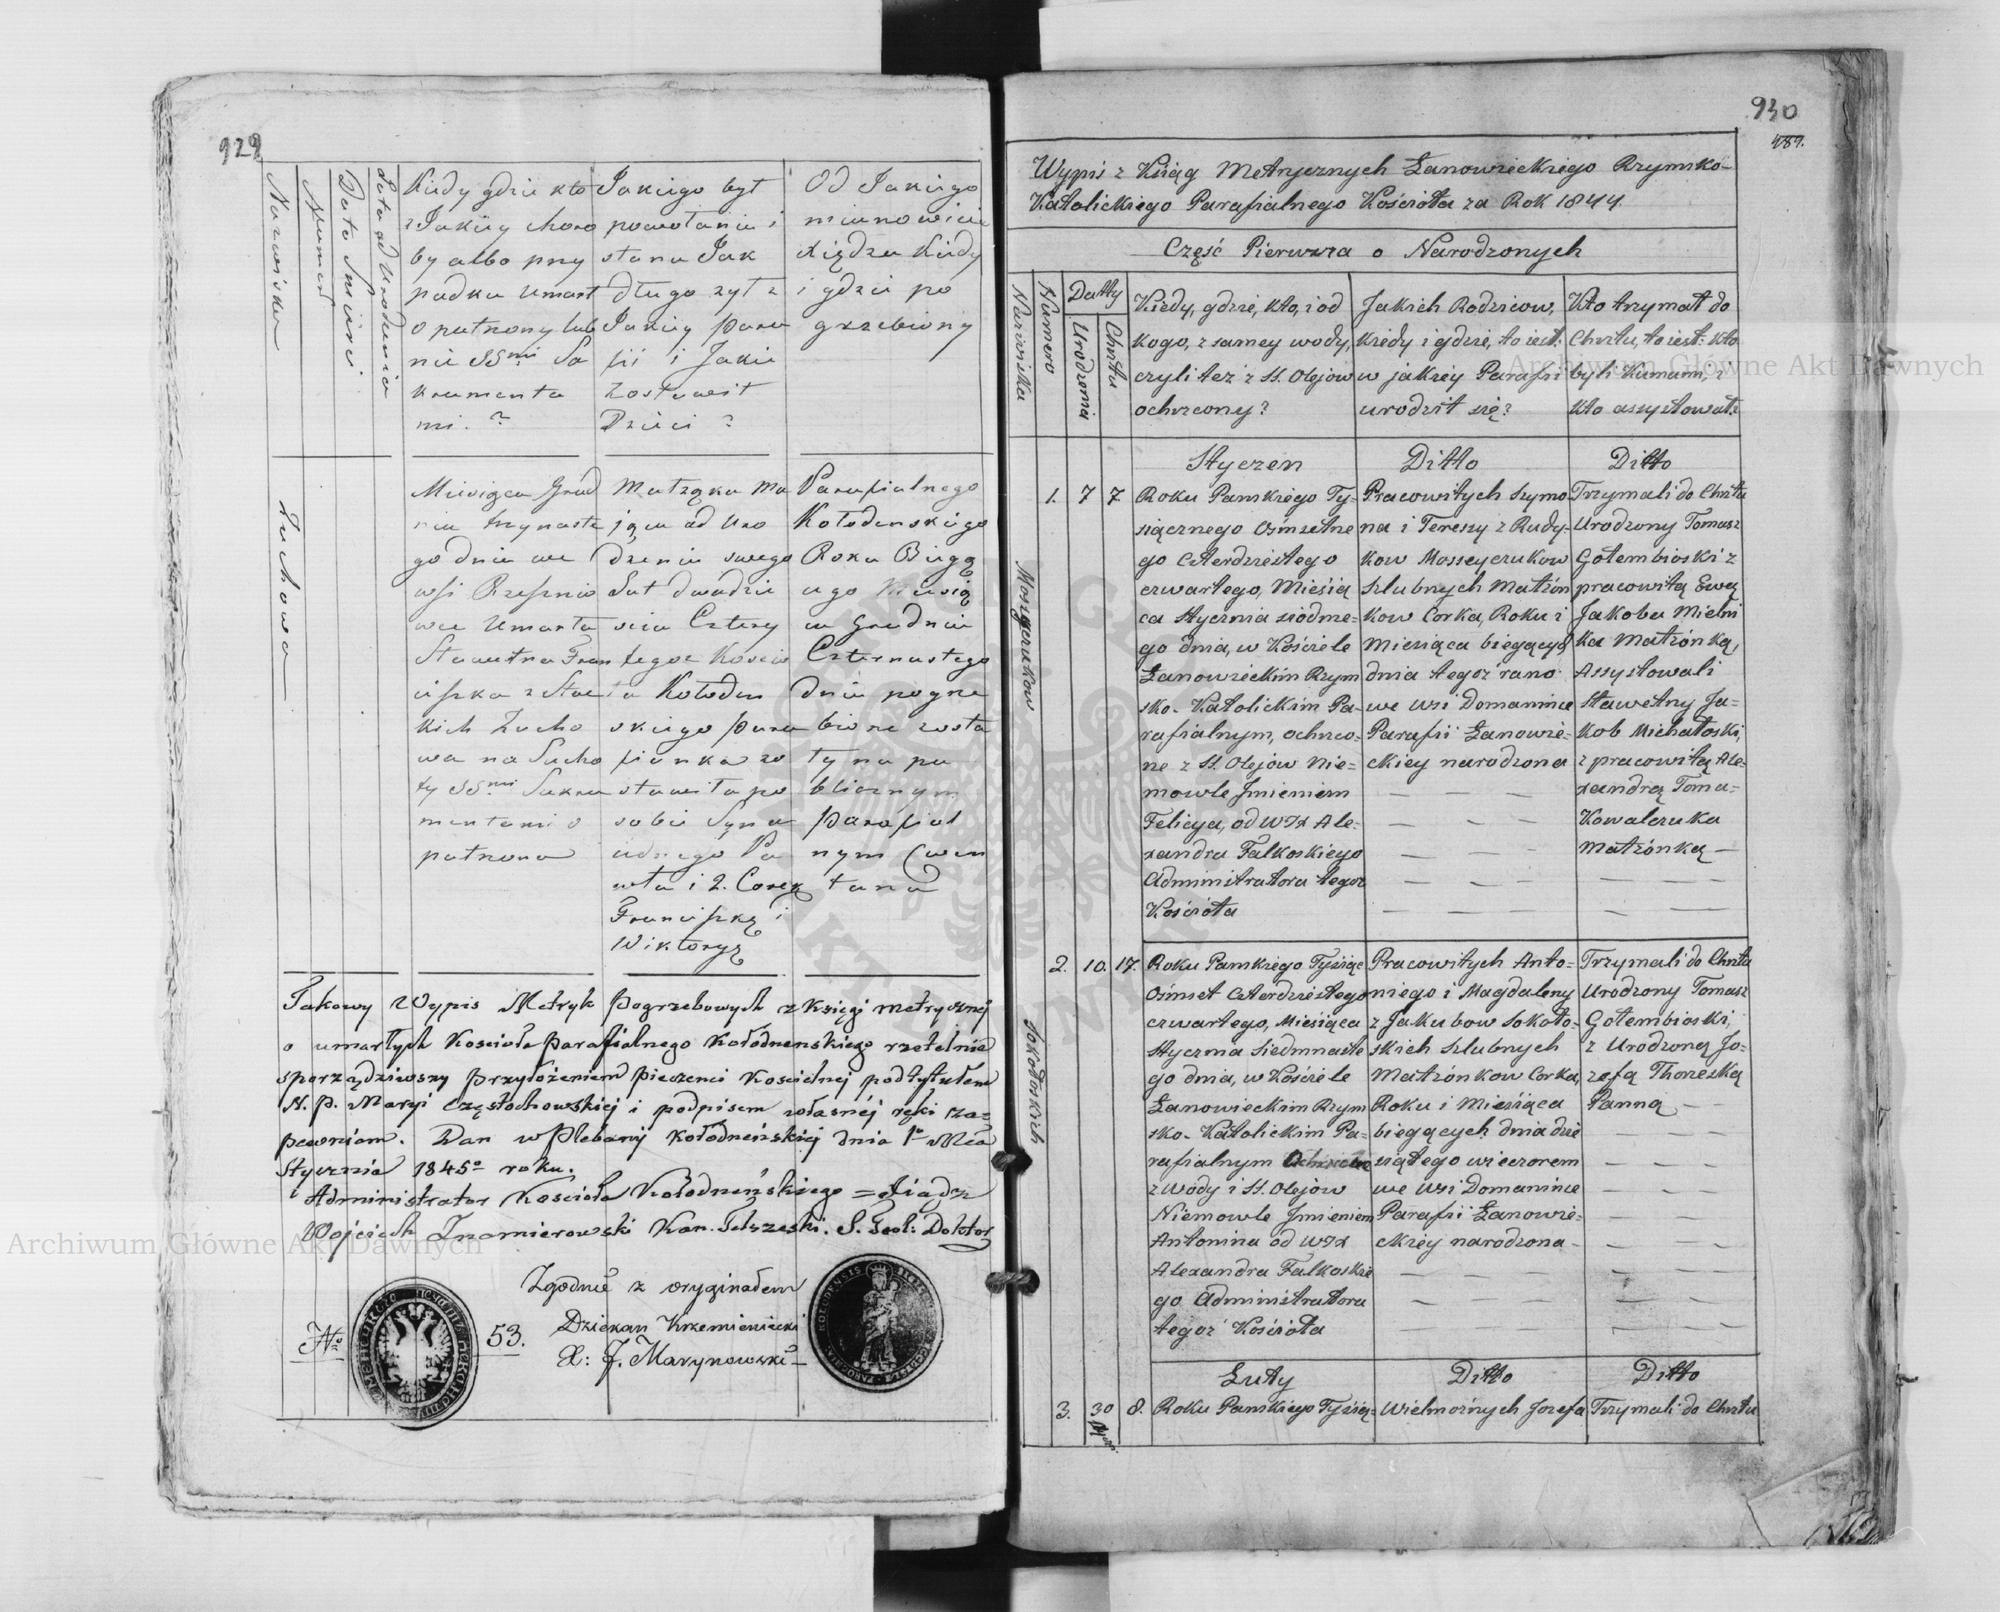 929
Nazwisko
Numer
Data Śmierci
Lata od Urodzenia
Kiedy gdzie kto
z Jakiey choro
by albo przy
padku umarł
opatrzony lub
nie SSmi Sa
kramenta
mi. ?
Jakiego był
powołania i
stanu Jak
długo żył z
Jakiey Para
fii i Jakie
zostawił
Dzieci ?
Od Jakiego
mianowicie
Xiędza Kiedy
i gdzie po
grzebiony
Zuchowa
Miesiąca Grud
nia trzynaste
go dnia we
wsi Rzesznio
wce Umarła
Sławetna Fran
ciszka z Stac
kich Zucho
wa na Sucho
ty SSmi Sakra
mentami o
patrzona
Mężatka ma
jąca od Uro
dzenia swego
Lat dwadzie
ścia Cztery
tegoż Koscio
ła Kołoden
skiego para
fianka zo
stawiła po
sobie Syna
iednego Pa
wła i 2. Corek
Franciszkę i
Wiktoryę
Parafialnego
Kołodenskiego
Roku Bieżą
cego Miesią
ca Grudnia
Czternastego
dnia pogrze
biona zosta
ty na pu
blicznym
parafial
nym Cmen
tarzu
Takowy Wypis Metryk Pogrzebowych z Księgi metryczney
o umarłych Kościoła Parafialnego Kołodneńskiego rzetelnie
sporządziwszy przyłożeniem pieczenci Koscielnej pod tytułem
N. P. Maryi Częstochowskiej i podpisem własnéj ręki za=
pewniam. Dan w Plebanij Kołodneńskiej dnia 1o Mca
Stycznia 1845o roku.
Administrator Kościoła Kołodneńskiego = Xiądz
Wojciech Znamierowski Kan. S. Teol: Doktor
Zgodnie z oryginałem
Dziekan Krzemieniecki
X: J. Marynowski
No 53.
930
489.
Wypis z Ksiąg Metrycznych Łanowieckiego Rzymsko-
Katolickiego Parafialnego Kościoła za Rok 1844
Część Pierwsza o Narodzonych
Nazwiska
Numero
Datty
Urodzenia
Chrztu
Kiedy, gdzie, kto, i od
kogo, z samey wody,
czyli też z SS. Olejow
ochrzcony?
Jakich Rodzicow,
kiedy i gdzie, to iest:
w jakiey Parafii
urodził się?
Kto trzymał do
Chrztu, to iest: kto
byli Kumami, i
kto assystował:
Styczen
Ditto
Ditto
Moszeyczukow
1. 7 7
Roku Panskiego Ty-
siącznego Ośmsetne
go Czterdziestego
czwartego, Miesią
ca Stycznia siódme-
go dnia, w Kościele
Łanowieckim Rzym
sko-Katolickim Pa-
rafialnym, ochrzco=
ne z SS. Olejow Nie=
mowle Jmieniem
Felicya, od WJX Ale-
xandra Falkoskiego
Administratora tegoż
Kościoła
Pracowitych Szymo
na i Teressy z Rudy-
kow Mosseyczukow
szlubnych Małżon
kow Corka, Roku i
Miesiąca bieżących
dnia tegoż rano
we wsi Domanince
Parafii Łanowie-
ckiey narodzona
Trzymali do Chrztu
Urodzony Tomasz
Gołembioski z
pracowitą Ewą
Jakoba Mielni
ka Małżonką,
Assystowali
Sławetny Ja=
kob Michałoski,
z pracowitą Ale-
xandrą Toma=
Kowalczuka
Małżonką —
Sokołoskich
2. 10. 17.
Roku Panskiego Tysiąc
Ośmset Czterdziestego
czwartego, Miesiąca
Stycznia siedmnaste
go dnia, w Kościele
Łanowieckim Rzym
sko-Katolickim Pa-
rafialnym
z wody i SS. Olejow
Niemowle Jmieniem
Antonina od WJX
Alexandra Falkoskie
go Administratora
tegoż Kościoła
Pracowitych Anto-
niego i Magdaleny
z Jakubow Sokoło-
skich szlubnych
Małżonkow Corka,
Roku i Miesiąca
bieżących dnia dzie
siątego wieczorem
we wsi Domanince
Parafii Łanowie-
ckiey narodzona-
Trzymali do Chrztu
Urodzony Tomasz
Gołembioski,
z Urodzoną Jo-
zefą Thorzeską
Panną —
Luty
Ditto
Ditto
3. 30 8.
Roku Panskiego Tysią-
Wielmożnych Jozefa
Trzymali do Chrztu
Archiwum Główne Akt Dawnych
Archiwum Główne Akt Dawnych